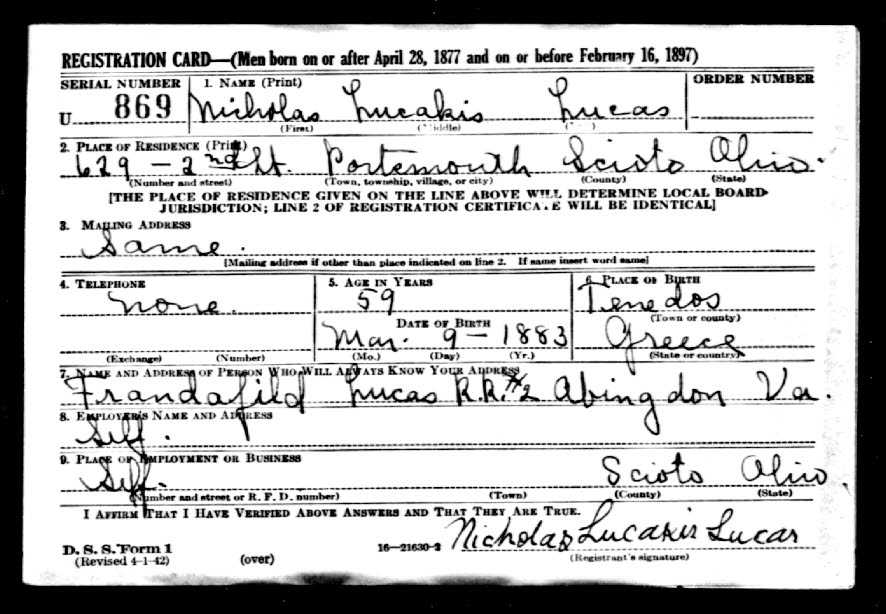 REGISTRATION CARD—(Men born on or after April 28, 1877 and on or before February 16, 1897)
SERIAL NUMBER 1. NAME (Print) ORDER NUMBER
U 869 Nicholas Lucakis Lucas
(First) (Middle)
2. PLACE OF RESIDENCE (Print)
629 - 2nd St. Portsmouth Scioto Ohio.
(Number and street) (Town, township, village, or city) (County) (State)
[THE PLACE OF RESIDENCE GIVEN ON THE LINE ABOVE WILL DETERMINE LOCAL BOARD
JURISDICTION; LINE 2 OF REGISTRATION CERTIFICATE WILL BE IDENTICAL]
3. MAILING ADDRESS
Same.
[Mailing address if other than place indicated on line 2. If same insert word same]
4. TELEPHONE 5. AGE IN YEARS 6. PLACE OF BIRTH
none. 59 Tenedos
(Town or county)
DATE OF BIRTH
Mar. 9 - 1883 Greece
(Exchange) (Number) (Mo.) (Day) (Yr.) (State or country)
7. NAME AND ADDRESS OF PERSON WHO WILL ALWAYS KNOW YOUR ADDRESS
Frandafild Lucas R.R. #2 Abingdon Va.
8. EMPLOYER'S NAME AND ADDRESS
Self.
9. PLACE OF EMPLOYMENT OR BUSINESS
Self. Scioto Ohio
(Number and street or R. F. D. number) (Town) (County) (State)
I AFFIRM THAT I HAVE VERIFIED ABOVE ANSWERS AND THAT THEY ARE TRUE.
D. S. S. Form 1 16—21630-2 Nicholas Lucakis Lucas
(Revised 4-1-42) (over) (Registrant's signature)